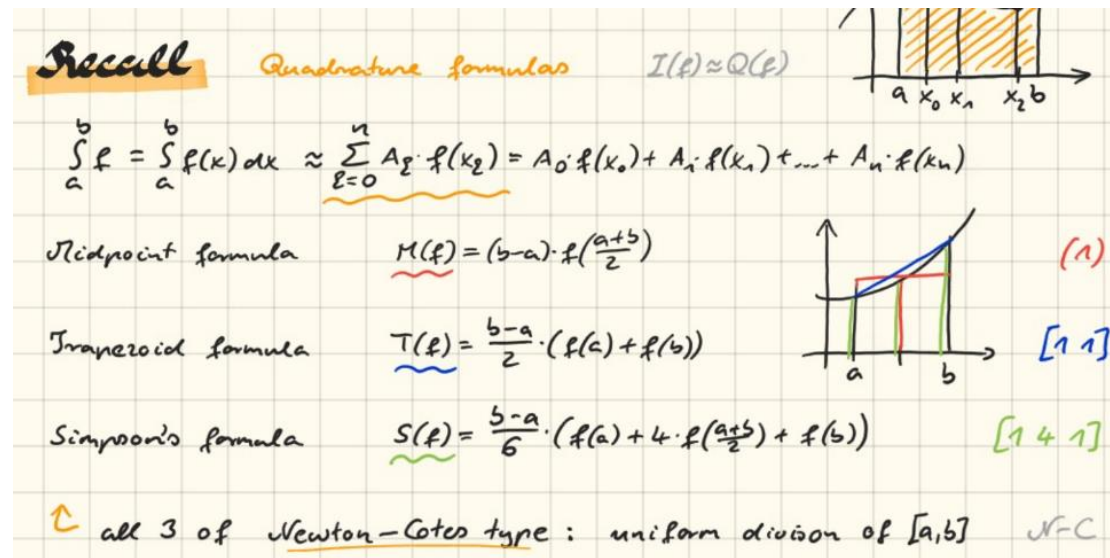 Recall Quadrature formulas I(f)≈Q(f)
a x₀ x₁ x₂ b
∫ₐᵇ f = ∫ₐᵇ f(x) dx ≈ ∑ₖ₌₀ⁿ Aₖ·f(xₖ) = A₀·f(x₀) + A₁·f(x₁) + ... + Aₙ·f(xₙ)
Midpoint formula M(f) = (b-a)·f((a+b)/2) (1)
Trapezoid formula T(f) = (b-a)/2·(f(a) + f(b)) [1 1]
a b
Simpson's formula S(f) = (b-a)/6·(f(a) + 4·f((a+b)/2) + f(b)) [1 4 1]
↑ all 3 of Newton-Cotes type: uniform divison of [a,b] N-C